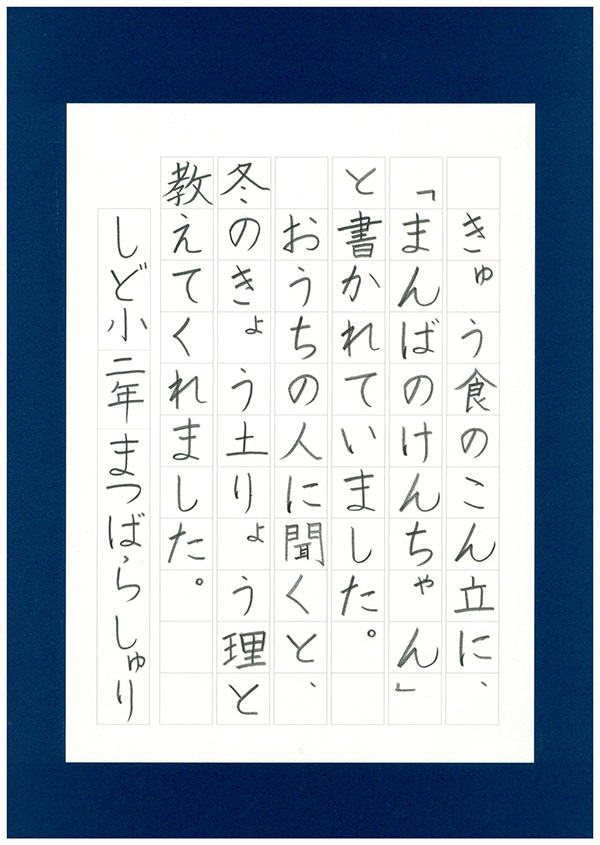 きゅう食のこん立に、
「まんばのけんちゃん」
と書かれていました。
おうちの人に聞くと、
冬のきょう土りょう理と
教えてくれました。
しど小二年まつばらしゅり